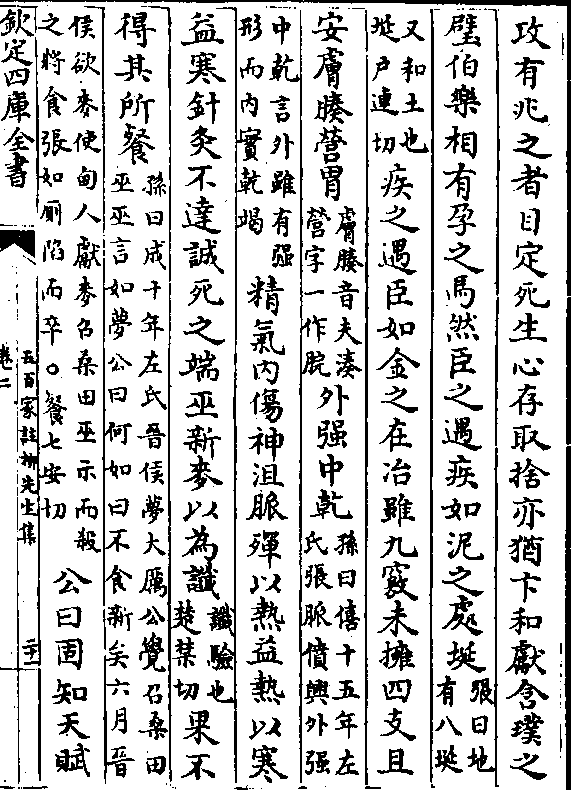 攻有兆之者目定死生心存取捨亦猶卞和獻含璞之
璧伯樂相有孕之馬然臣之遇疾如泥之處埏張曰地
有八埏
又和土也
埏尸連切疾之遇臣如金之在冶雖九竅未擁四支且
安膚腠營胃膚腠音夫湊
營字一作脘外强中乾孫曰僖十五年左
氏張脈僨興外强
中乾言外雖有强
形而内實乾竭精氣内傷神沮脈殫以熱益熱以寒
益寒針灸不達誠死之端巫新麥以為讖讖驗也
楚禁切果不
得其所餐孫曰成十年左氏晉侯夢大厲公覺召桑田
巫巫言如夢公曰何如曰不食新矣六月晉
侯欲麥使甸人獻麥召桑田巫示而殺
之將食張如厠陷而卒○餐七安切公曰固知天賦
欽定四庫全書
五百家註柳先生集
卷二
二十